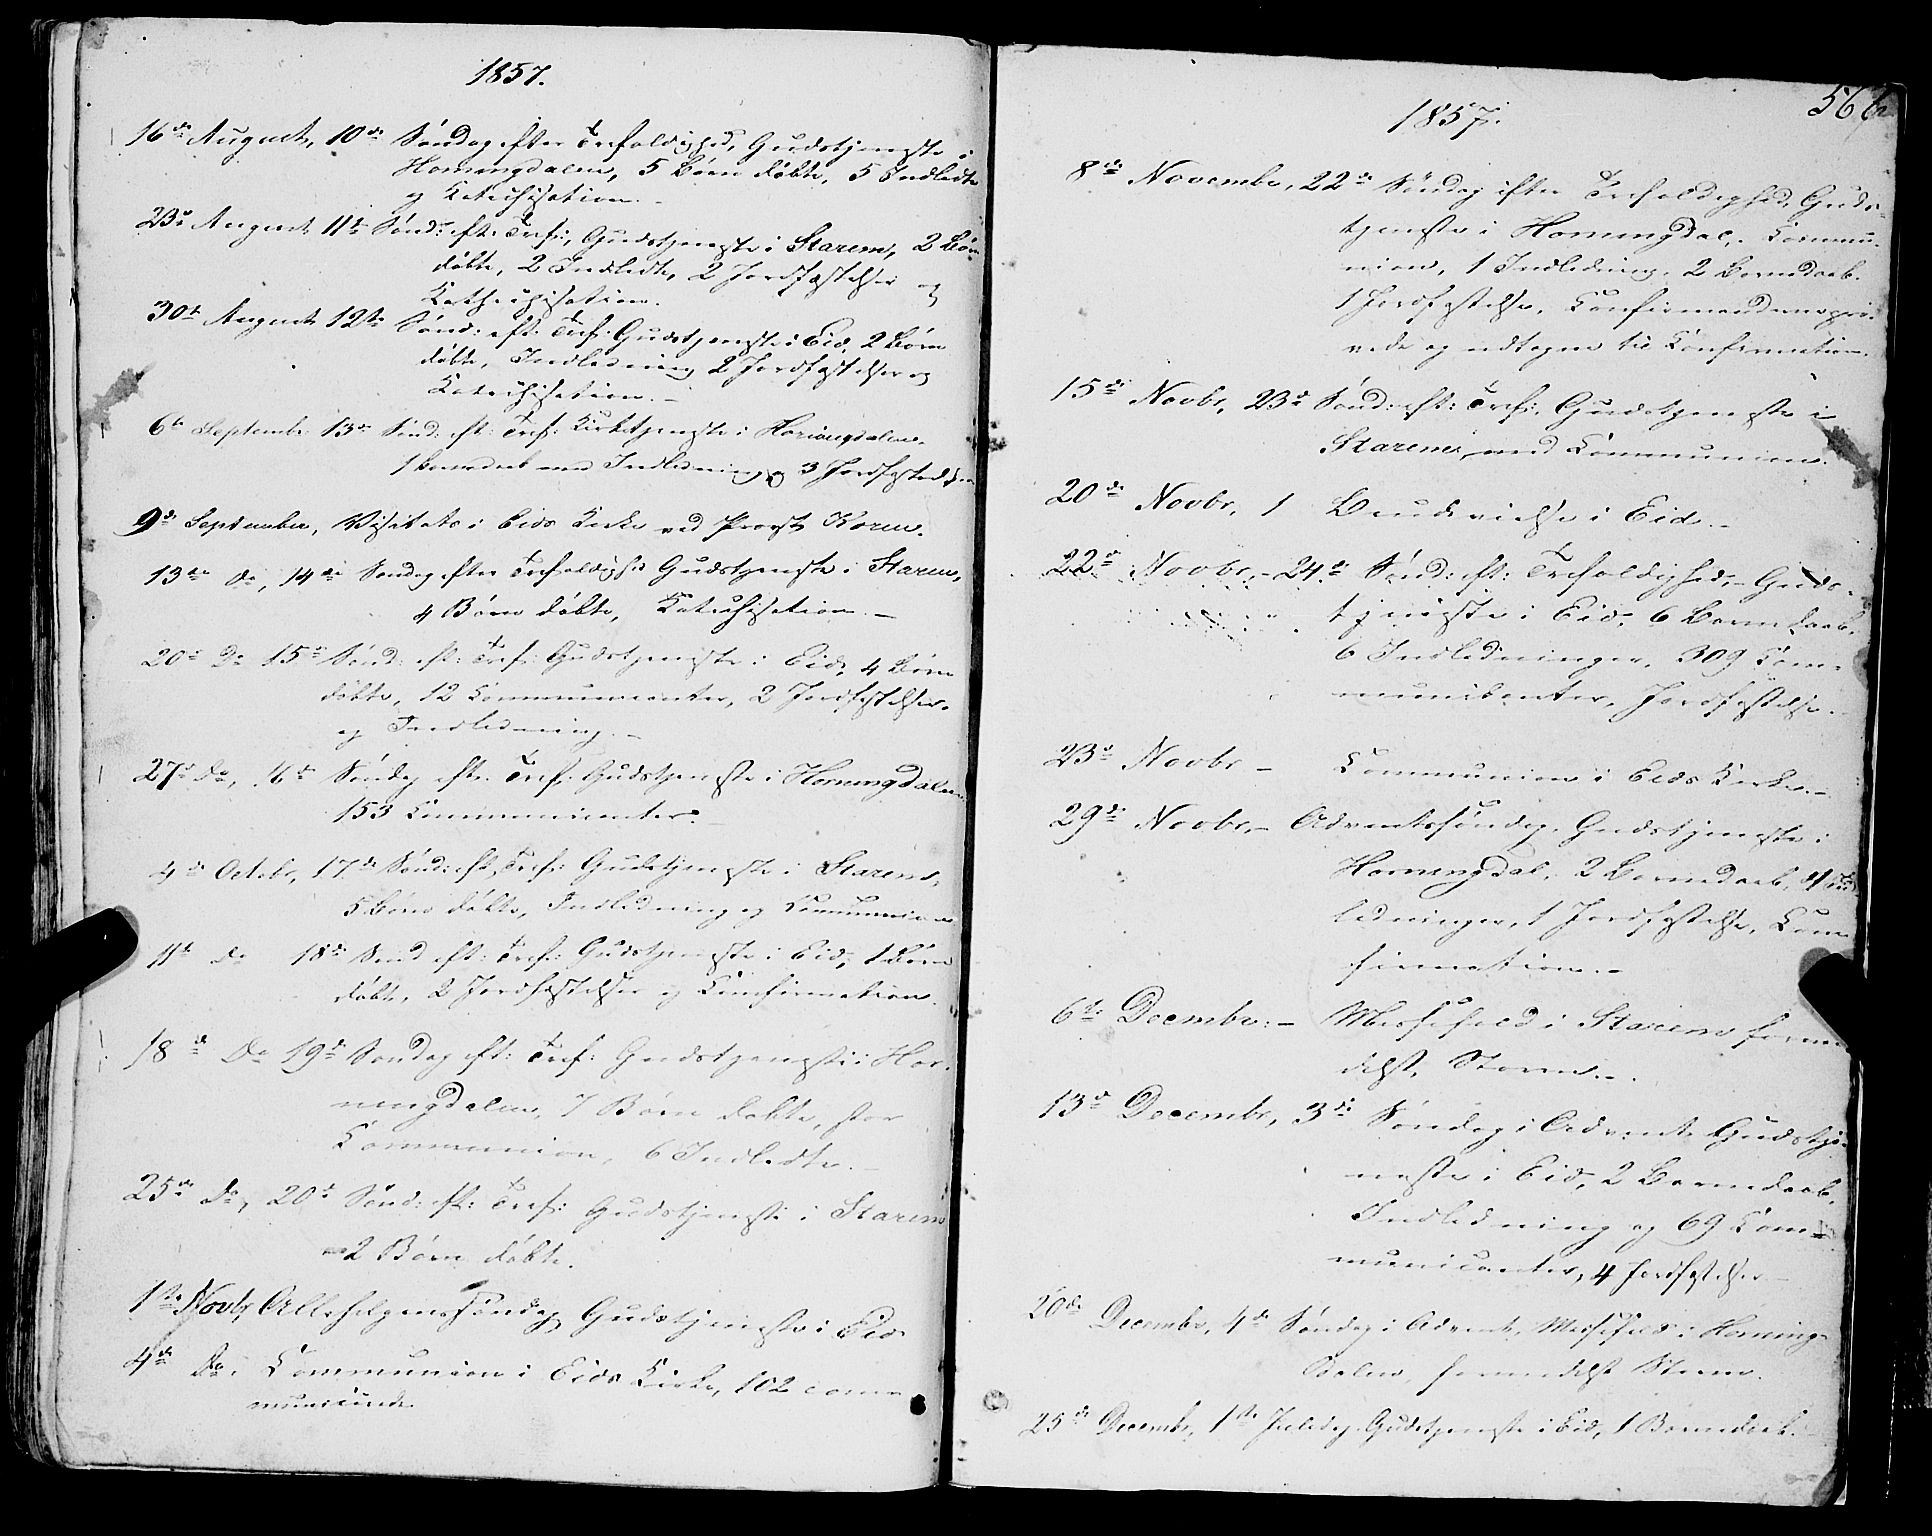 1857.
16de August, 10de Søndag efter Trefoldighed, Gudstjeneste i
Horningdalen, 5 Børn døbte, 5 Indledte
og Katechisation.-
23de August 11te Sønd: eft: Tref:, Gudstjeneste i Starem, 2 Børn
døbte, 2 Indledte, 2 Jordfæstelser og
Katechisation.
30te August 12te Sønd: eft: Tref: Gudstjeneste i Eid, 2 Børn
døbte, Indledning 2 Jordfæstelser og
Katechisation.-
6te Septembr 13de Sønd: eft: Tref: Kirketjeneste i Horningdalen.
1 Barnedaab med Indledning og 3 Jordfæstelser
9de September, Visitats i Eids Kirke ved Provst Koren.
13de Do, 14de Søndag efter Trefoldighed Gudstjeneste i Starem,
4 Børn døbte, Katechisation.-
20de Do 15de Sønd: eft: Tref: Gudstjeneste i Eid, 4 Børn
døbte, 12 Communicanter, 2 Jordfæstelser.
og Indledning.-
27de Do, 16de Søndag eft: Tref: Gudstjeneste i Horningdalen
153 Communicanter.-
4de Octobr, 17de Sønd: eft. Tref: Gudstjeneste i Starem,
5 Børn døbte, Indledning og Communion
11te Do 18de Sønd eft: Tref: Gudstjeneste i Eid, 1 Børn
døbt, 2 Jordfæstelser og Confirmation.
18de Do 19de Søndag eft: Tref: Gudstjeneste i Hor-
ningdalen, 7 Børn døbte, stor
Communion, 6 Indledte.-
25de Do, 20de Sønd: eft: Tref: Gudstjeneste i Starem
2 Børn døbte.
1ste Novbr, Allehelgenssøndag Gudstjeneste i Eid
4de Do. Communion i Eids Kirke, 102 com-
municerede.
1857.
56
8de Novembr, 22de Søndag efter Trefoldighed, Guds-
tjeneste i Horningdal, Commu-
nion, 1 Indledning, 2 Barnedaab.
1 Jordfæstelse, Confirmanderne prø-
vede og udtagne til Confirmation.
15de Novbr, 23de Sønd: eft: Tref:, Gudstjeneste i
Starem med Communion.
20de Novbr, 1 Brudevielse i Eid.-
22de Novbr,- 24de Sønd: eft: Trefoldighed,- Guds-
tjeneste i Eid, 6 Barnedaab.
6 Indledninger, 309 Com-
municanter, Jordfæstelse.-
23de Novbr - Communion i Eids Kirke.-
29de Novbr,- Adventssøndag, Gudstjeneste i
Horningdal, 2 Barnedaab, 4 Ind
ledninger, 1 Jordfæstelse, Con
firmation.-
6te Decembr:- Messefald i Starem forme
delst Storm.-
13de Decembr, 3de Søndag i Advent, Gudstje-
neste i Eid, 2 Barnedaab.
Indledning og 69 Com-
municanter, 4 Jordfæstelser-
20de Decembr, 4de Søndag i Advent, Messefald i Horning-
dalen formedelst Storm.
25de Decembr, 1ste Juledag Gudstjeneste i Eid, 1 Barnedaab.